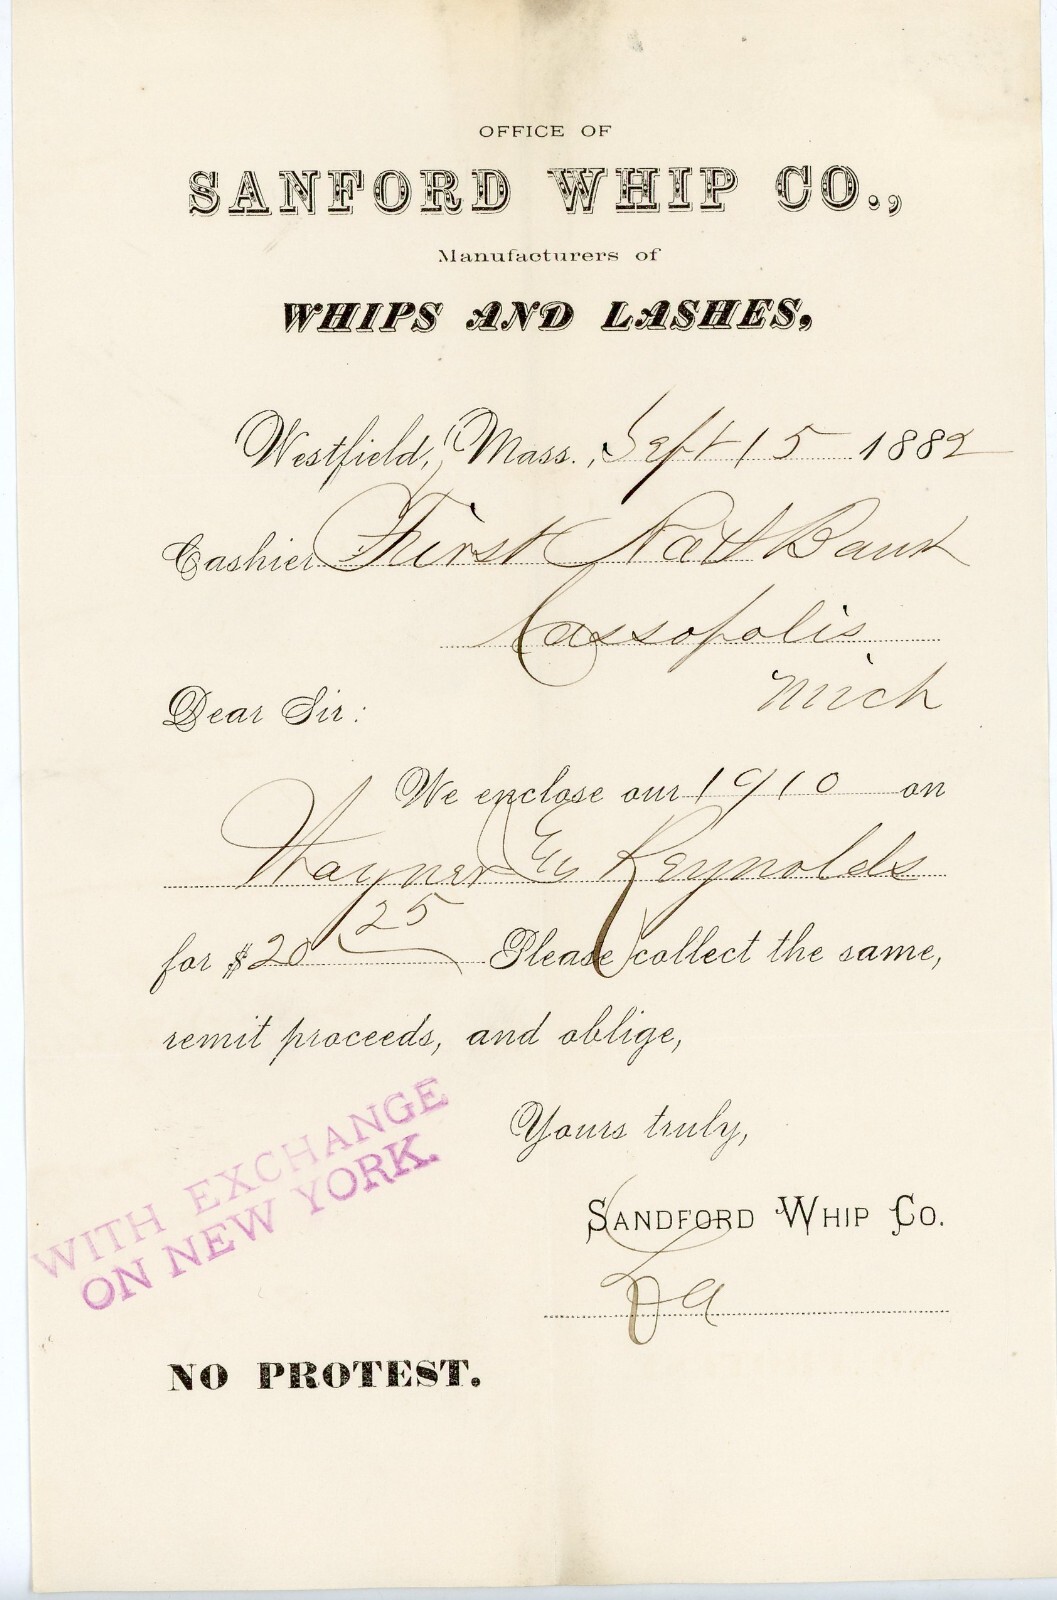 OFFICE OF
SANFORD WHIP CO.,
Manufacturers of
WHIPS AND LASHES,
Westfield, Mass., Sept 15 1882
Cashier First Nat Bank
Cassopolis
Mich
Dear Sir:
We enclose our 1910 on
Reynolds
for $20 25 Please collect the same,
remit proceeds, and oblige,
Yours truly,
SANDFORD WHIP CO.
WITH EXCHANGE
ON NEW YORK.
NO PROTEST.